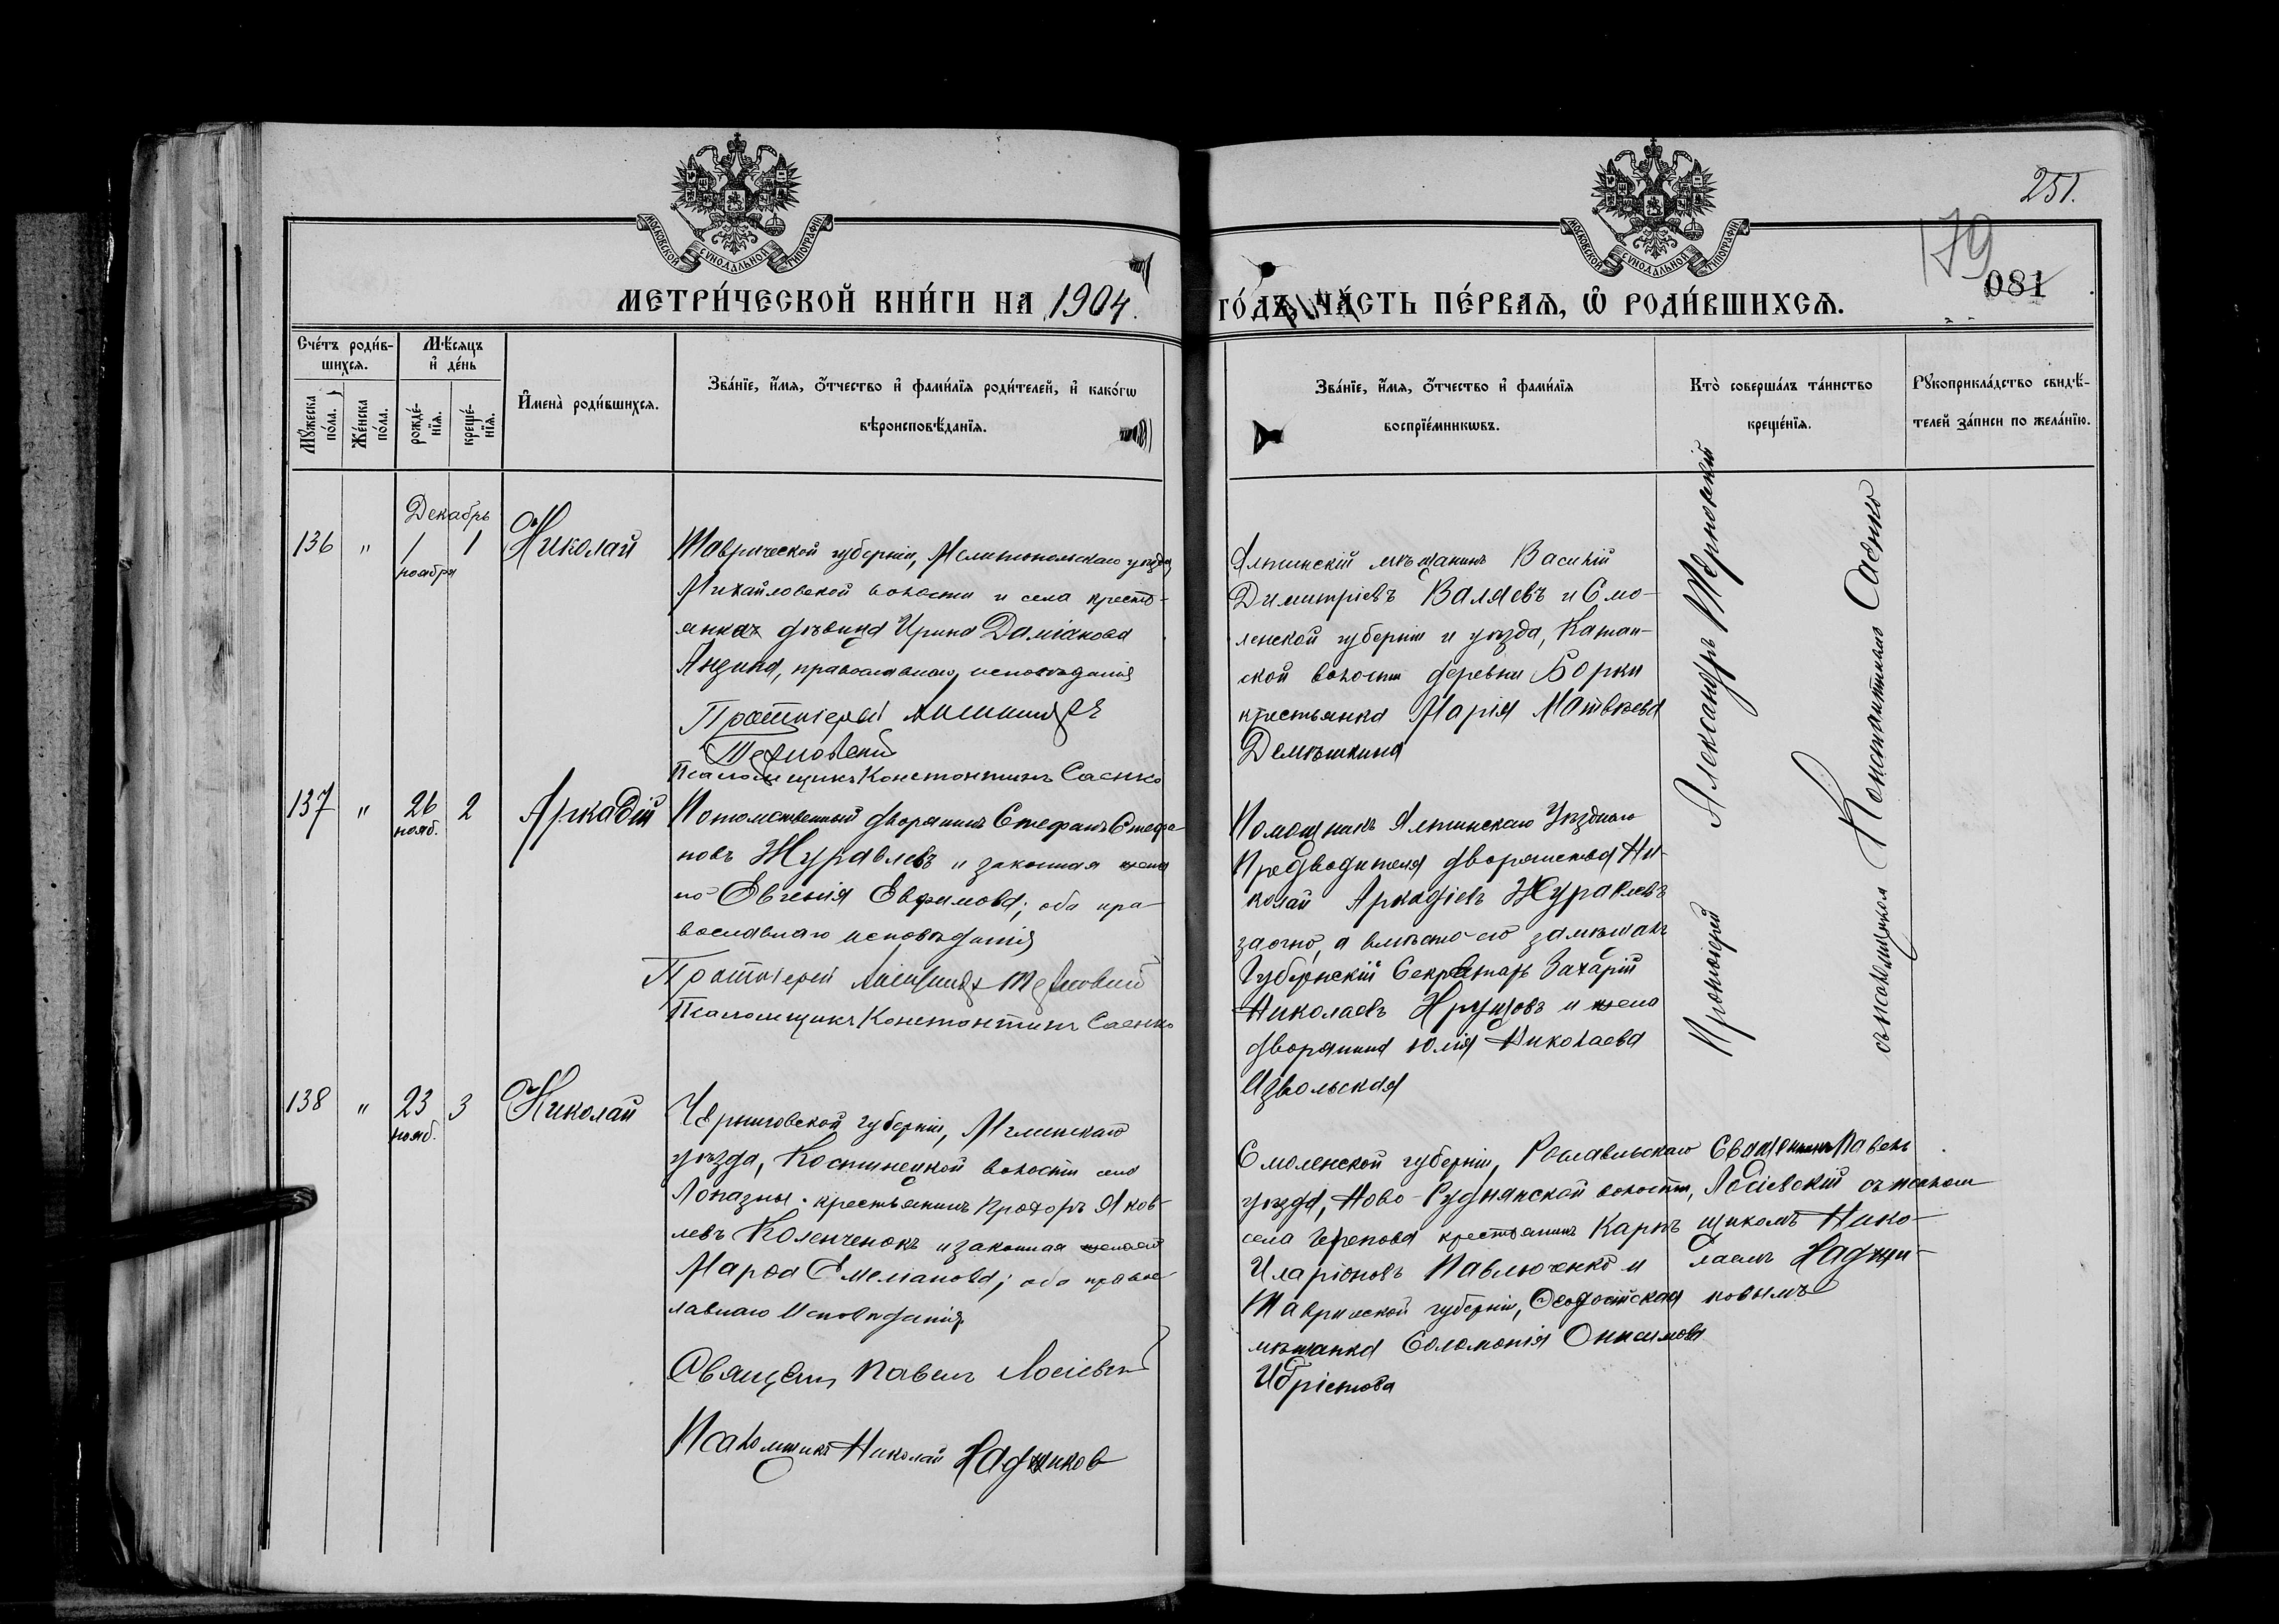 251.
179
081
МОСКОВСКОЙ СѴНОДАЛЬНОЙ ТИПОГРАФІИ
МОСКОВСКОЙ СѴНОДАЛЬНОЙ ТИПОГРАФІИ
МЕТРИ́ЧЕСКОЙ КНИ́ГИ НА 1904.
ГО́ДЪ, ЧА́СТЬ ПЕ́РВАѦ, Ѽ РОДИ́ВШИХСѦ.
Сче́тъ роди́в-
шихсѧ.
Мꙋ́жеска по́ла.
Же́нска по́ла.
Мѣ́сѧцъ
и҆ де́нь
рожде́-
нїѧ.
креще́-
нїѧ.
И҆мена̀ роди́вшихсѧ.
Зва́нїе, и҆́мѧ, ѻ҆́тчество и҆ фами́лїѧ роди́телей, и҆ како́гѡ
вѣроисповѣ́данїѧ.
Зва́нїе, и҆́мѧ, ѻ҆́тчество и҆ фами́лїѧ
воспрїе́мникѡвъ.
Кто̀ соверша́лъ та́инство
креще́нїѧ.
Рꙋкоприкла́дство свидѣ́-
телей за́писи по жела́нїю.
Декабрь
136 " 1 1 Николай
ноября
Таврической губерніи, Мелитопольскаго уѣзда,
Михайловской волости и села кресть-
янка дѣвица Ирина Даміанова
Янцина, православнаго исповѣданія
Протоіерей Александръ
Терновский
Псаломщикъ Константинъ Саенко
Ялтинскій мѣщанинъ Василій
Димитріевъ Валяевъ и Смо-
ленской губерніи и уѣзда, Катан-
ской волости деревни Борки
крестьянка Марія Матвѣева
Демѣшкина
137 " 26 2 Аркадій
нояб.
Потомственный дворянинъ Стефанъ Стефа-
новъ Журавлевъ и законная жена
его Евгенія Евфимова; оба пра-
вославнаго исповѣданія
Протоіерей Александръ Терновский
Псаломщикъ Константинъ Саенко
Помощникъ Ялтинскаго Уѣзднаго
Предводителя дворянства Ни-
колай Аркадіевъ Журавлевъ
заочно, а вмѣсто его замѣщалъ
Губернскій Секретарь Захарій
Николаевъ Хрущовъ и жена
дворянина Юлія Николаева
Извольская
Протоіерей Александръ Терновскій
съ псаломщикомъ Константиномъ Саенко
138 " 23 3 Николай
нояб.
Черниговской губерніи, Мглинскаго
уѣзда, Костинецкой волости села
Лопазны крестьянинъ Прохоръ Яков-
левъ Коленченокъ и законная жена его
Марфа Емеліанова; оба правос-
лавнаго исповѣданія
Священ. Павелъ Лосіевскій
Псаломщикъ Николай Хаджиновъ
Смоленской губерніи, Рославльскаго
уѣзда, Ново-Руднянской волости,
села Черепова крестьянинъ Карпъ
Иларіоновъ Павлюченко и
Таврической губерніи, Ѳеодосійская
мѣщанка Соломонія Онисимова
Священникъ Павелъ
Лосіевскій съ псалом
щикомъ Нико-
лаемъ Хаджи-
новымъ